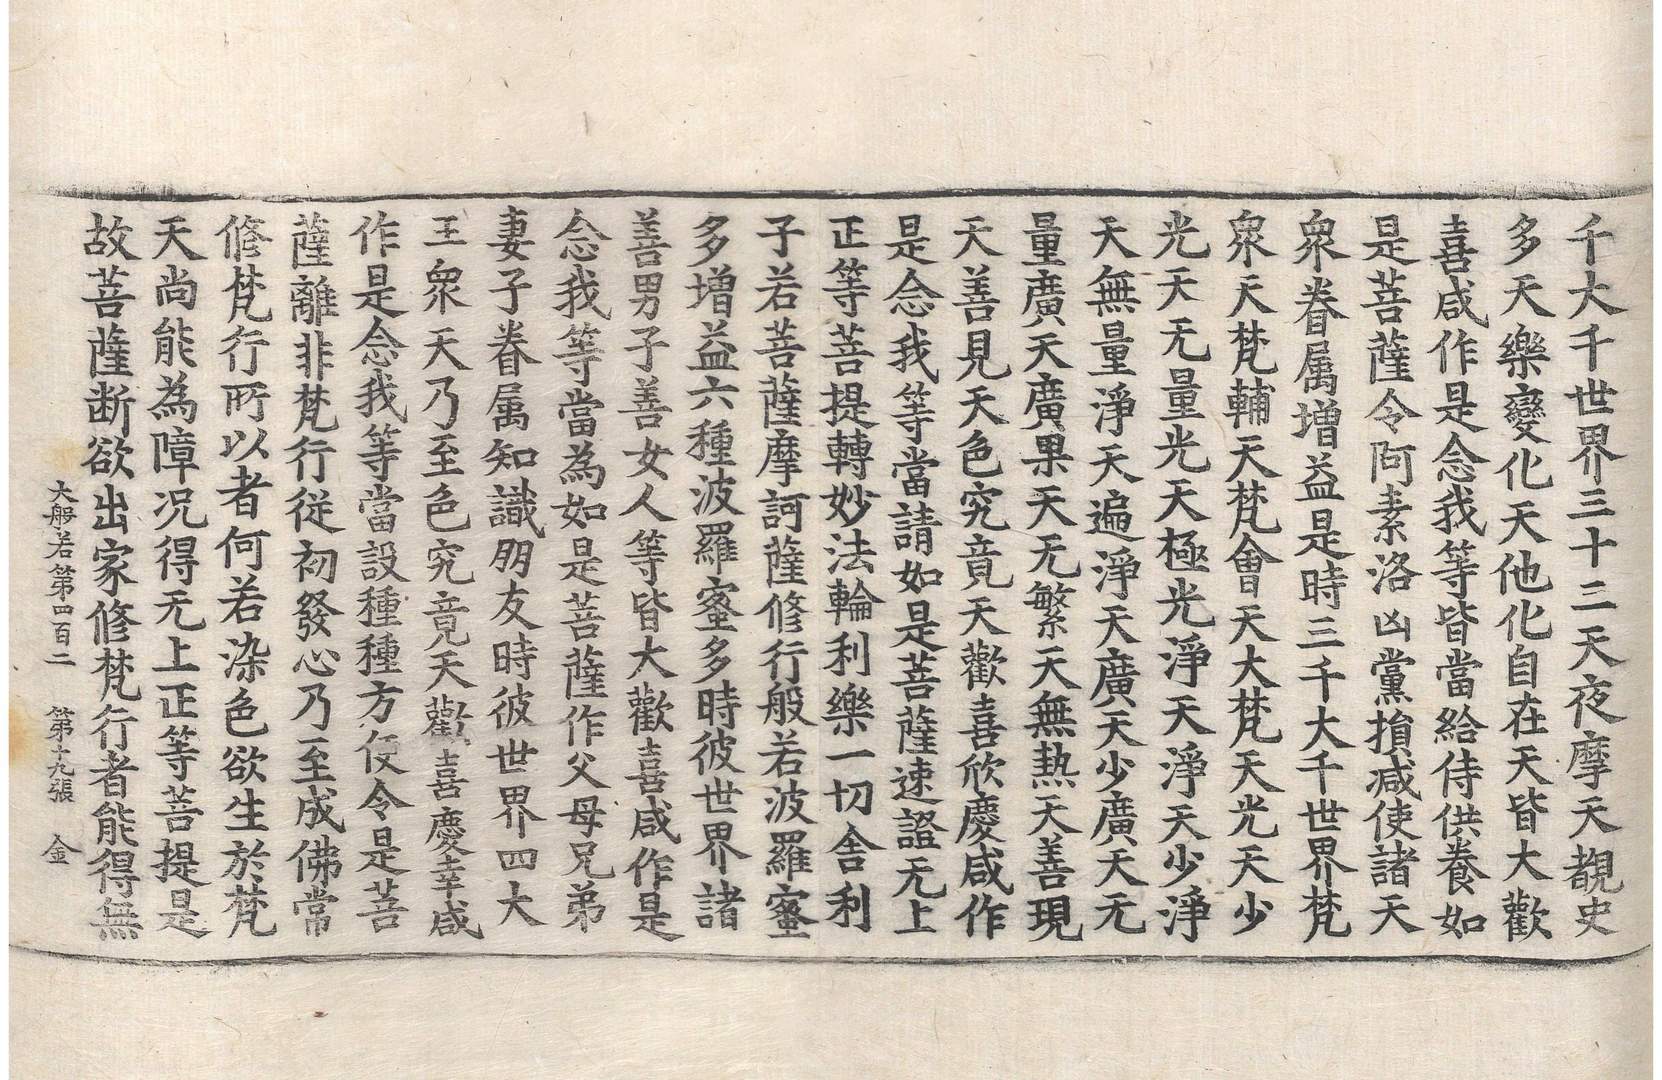 千大千世界三十三天夜摩天覩史
多天樂變化天他化自在天皆大歡
喜咸作是念我等皆當給侍供養如
是菩薩令阿素洛凶黨損減使諸天
衆眷屬增益是時三千大千世界梵
衆天梵輔天梵會天大梵天光天少
光天无量光天極光淨天淨天少淨
天無量淨天遍淨天廣天少廣天无
量廣天廣果天无繁天無熱天善現
天善見天色究竟天歡喜欣慶咸作
是念我等當請如是菩薩速證无上
正等菩提轉妙法輪利樂一切舍利
子若菩薩摩訶薩修行般若波羅蜜
多增益六種波羅蜜多時彼世界諸
善男子善女人等皆大歡喜咸作是
念我等當為如是菩薩作父母兄弟
妻子眷屬知識朋友時彼世界四大
王衆天乃至色究竟天歡喜慶幸咸
作是念我等當設種種方便令是菩
薩離非梵行從初發心乃至成佛常
修梵行所以者何若染色欲生於梵
天尚能為障况得无上正等菩提是
故菩薩断欲出家修梵行者能得無
大般若第四百二　第十九張　金